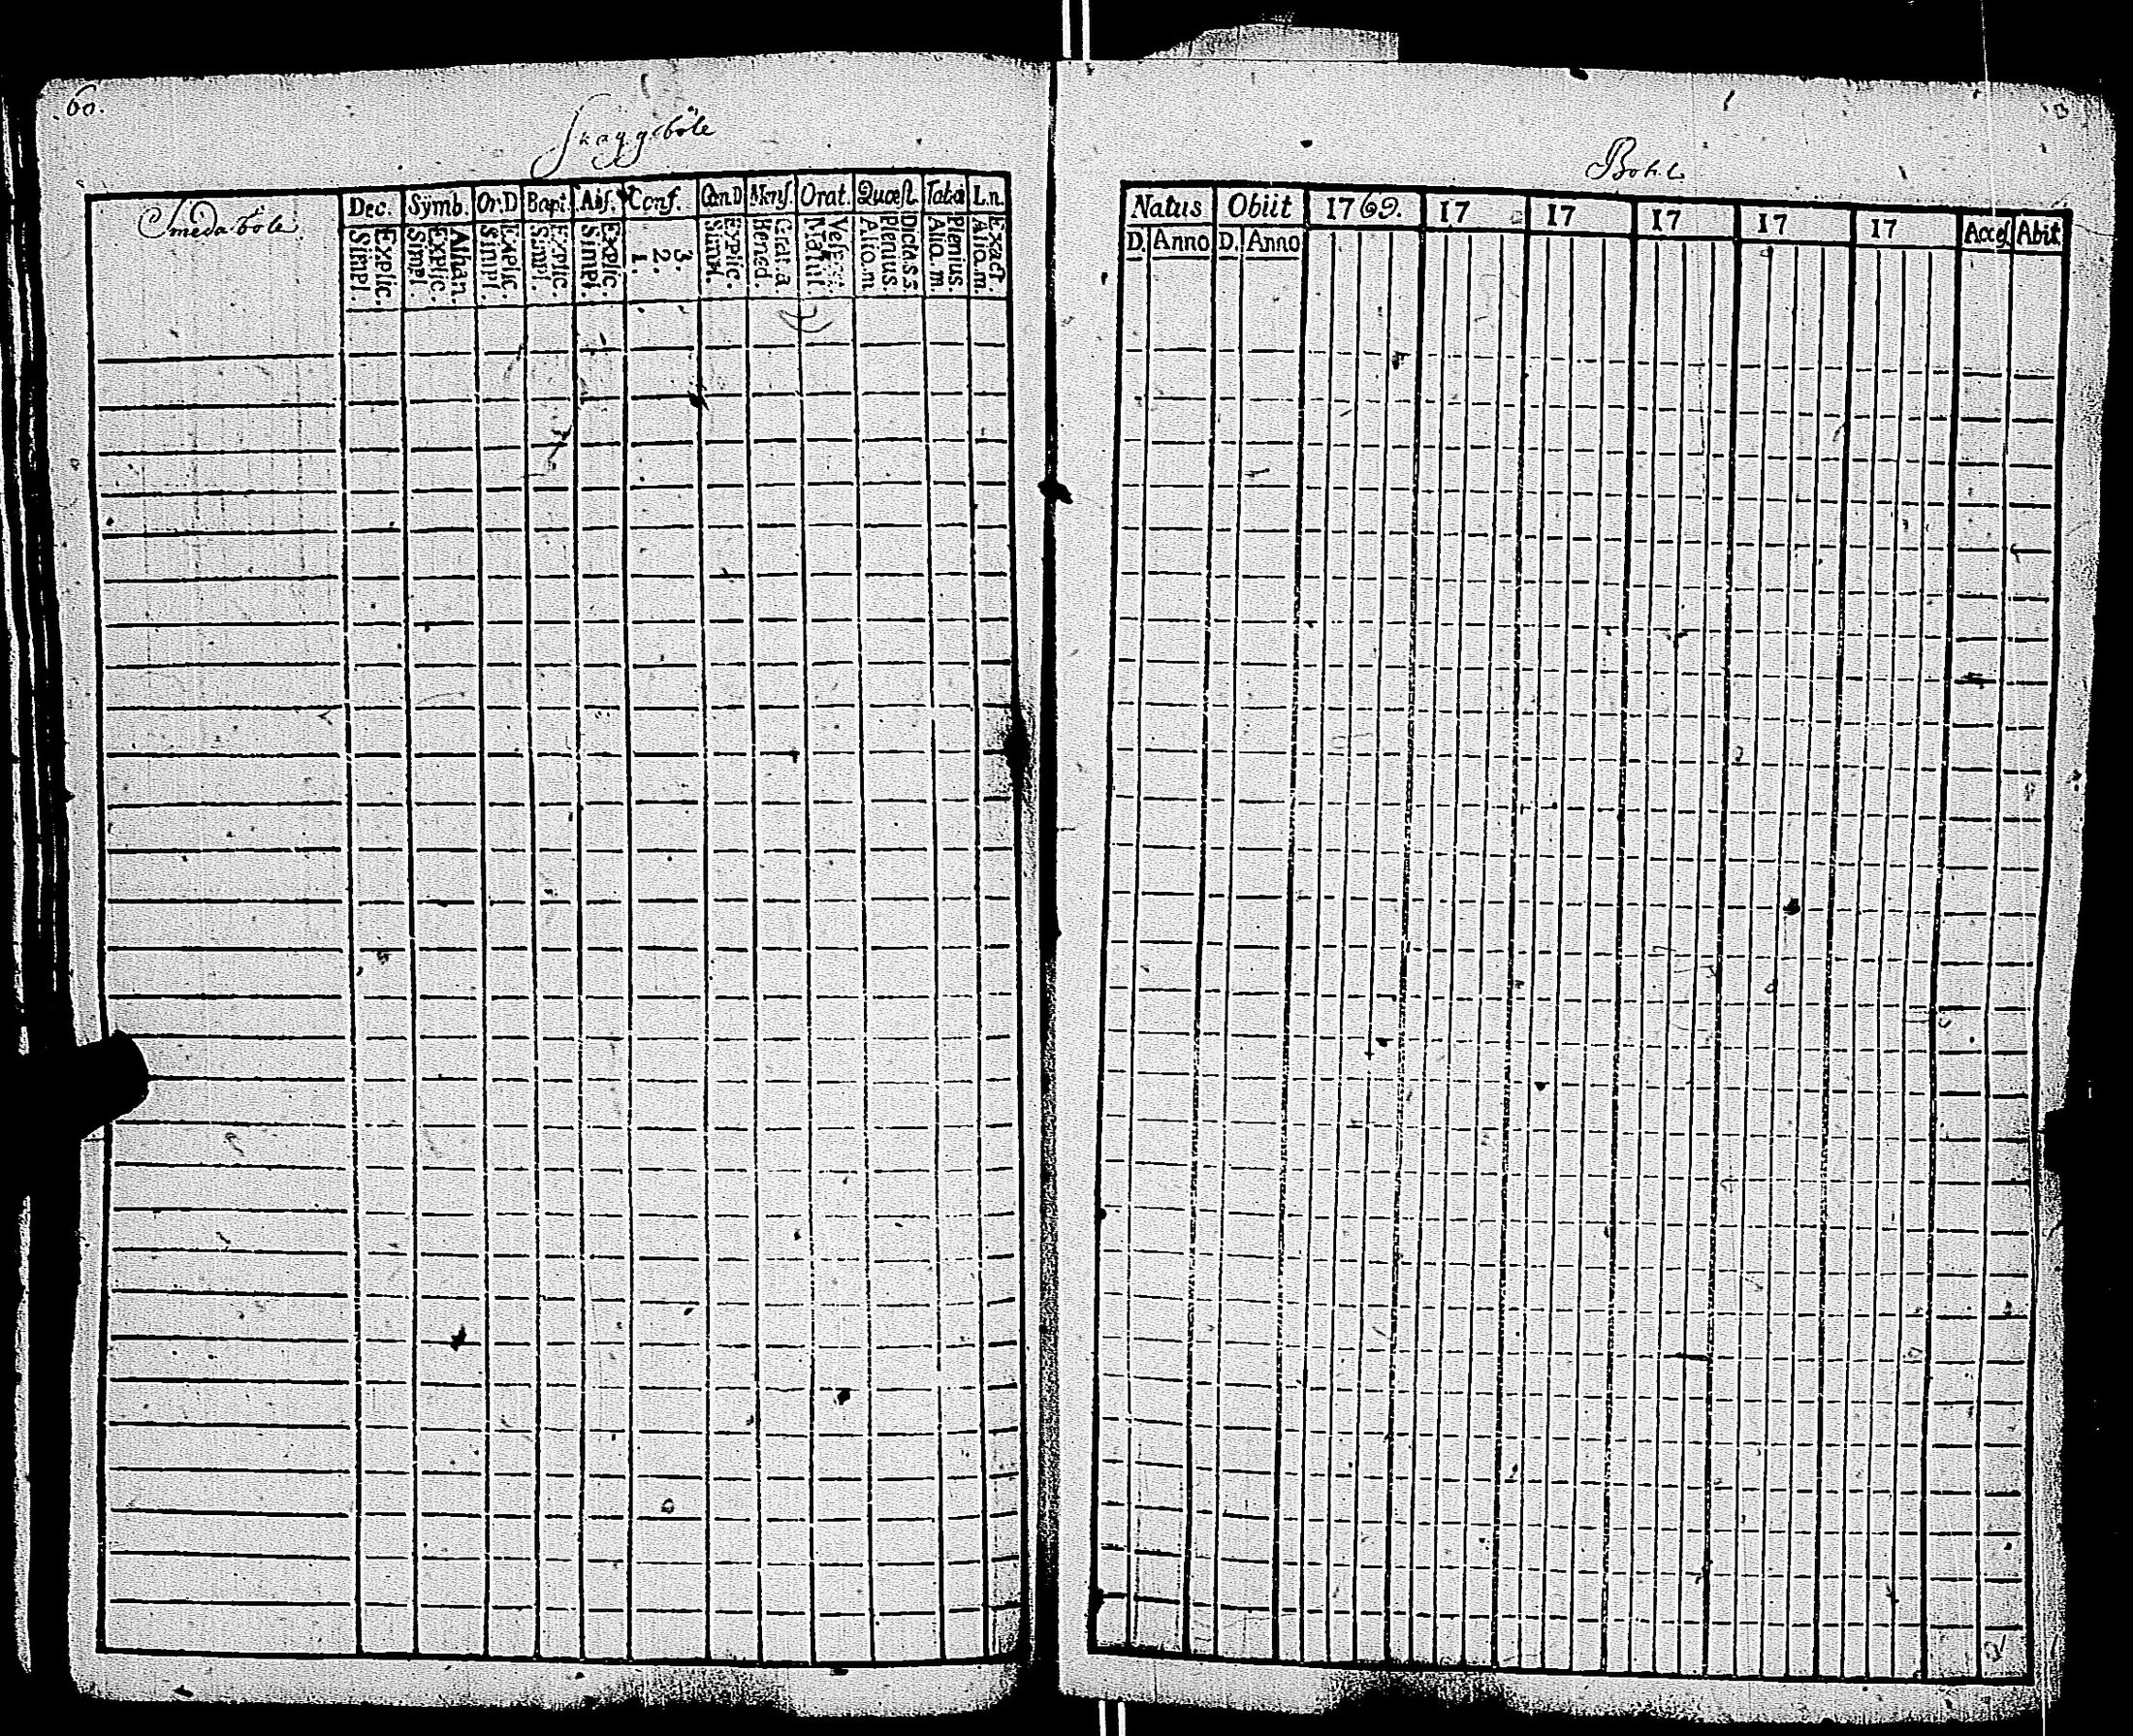 60.
Skaggeböle
Bohl
Smedaböle
Dec. Symb. Or.D Bapt. Abs. Conf. CœnD Mens. Orat. Quæst. Tabæ L.n.
Simpl. Explic. Simpl. Explic. Athan. Simpl. Explic. Simpl. Explic. Simpl. Explic. 1. 2. 3. Simpl. Explic. Bened. Grat.a Matut. Vesper. Alio.n Plenius. Dicta.s.s. Alio.m Plenius. Alio.m. Exact.
Natus Obiit 1769. 17 17 17 17 17 Acces. Abit
D. Anno D. Anno